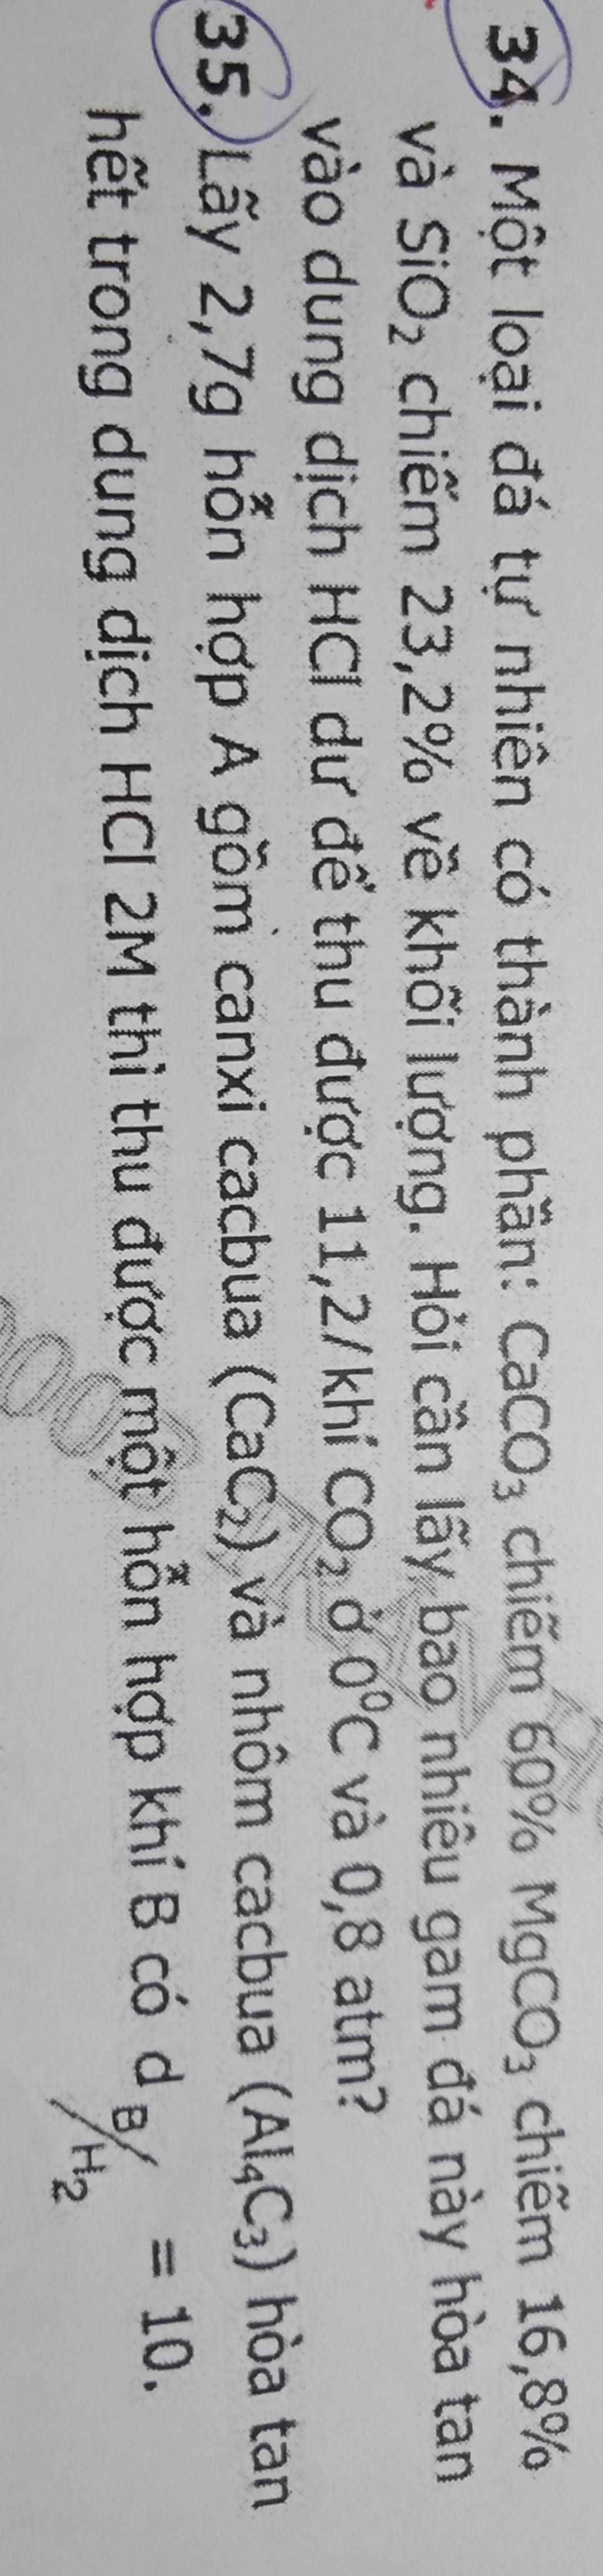 34. Một loại đá tự nhiên có thành phần: CaCO₃ chiếm 60% MgCO₃ chiếm 16,8%
và SiO₂ chiếm 23,2% về khối lượng. Hỏi cần lấy bao nhiêu gam đá này hòa tan
vào dung dịch HCl dư để thu được 11,2l khí CO₂ ở 0⁰C và 0,8 atm?
35. Lấy 2,7g hỗn hợp A gồm canxi cacbua (CaC₂) và nhôm cacbua (Al₄C₃) hòa tan
hết trong dung dịch HCl 2M thì thu được một hỗn hợp khí B có d B/H₂ = 10.